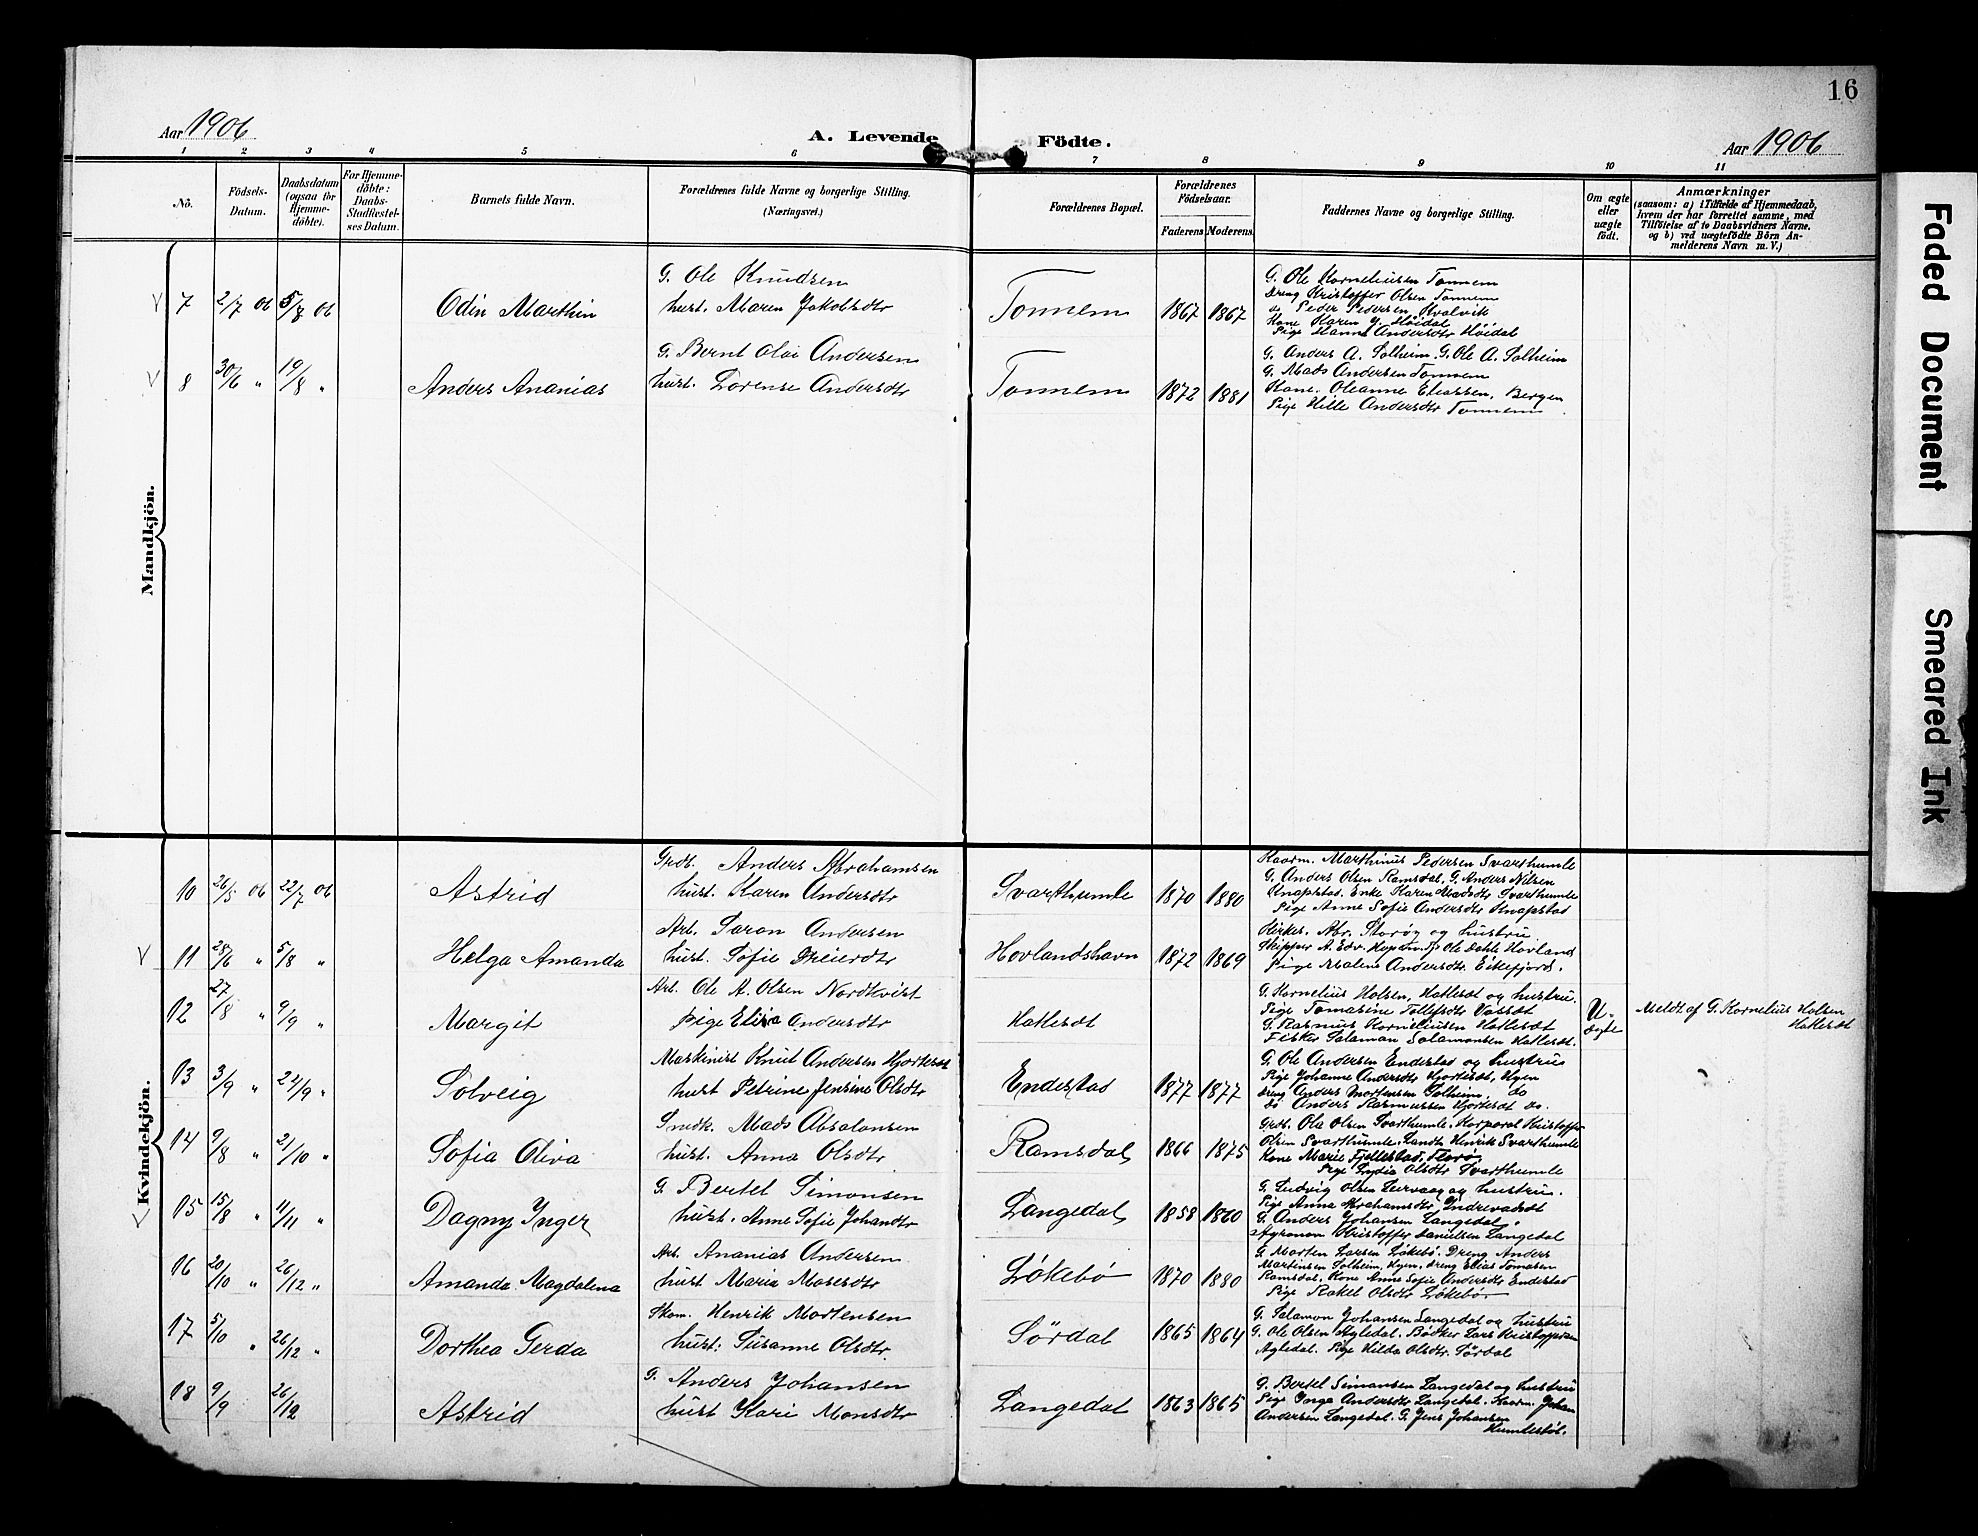 16
Aar 1906
A. Levende Födte.
Aar 1906
1 2 3 4 5 6 7 8 9 10 11
Nö.
Födsels-Datum.
Daabsdatum (ogsaa för Hjemme-döbte).
For Hjemme-döbte: Daabs-Stadfæstel-ses Datum.
Barnets fulde Navn.
Forældrenes fulde Navne og borgerlige Stilling.
(Næringsvei.)
Forældrenes Bopæl.
Forældrenes Födselsaar.
Faderens Moderens
Faddernes Navne og borgerlige Stilling.
Om ægte eller uægte födt.
Anmærkninger
(saasom: a) i Tilfælde af Hjemmedaab,
hvem der har forrettet samme, med
Tilföielse af to Daabsvidners Navne,
og b) ved uægtefödte Börn An-
melderens Navn m. V.)
Mandkjön.
7 2/7 06 5/8 06 Odin Marthin
G. Ole Knudsen
hust. Maren Jakobsdtr
Tonnem 1867 1867
G. Ole Korneliussen Tonnem
Dreng Kristoffer Olsen Tonnem
do Peder Pedersen Kvalvik
Kone Karen J. Höidal
Pige Hanna Andersdtr Höidal
8 30/6 " 19/8 " Anders Ananias
G. Bernt Olai Andersen
hust. Lorense Andersdtr
Tonnem 1872 1881
G. Anders A. Solheim. G. Ole A. Solheim
G. Mads Andersen Tonnem
Kone. Oleanne Eliassen, Bergen
Pige Hille Andersdtr Tonnem.
Kvindekjön.
10 26/5 06 22/7 06 Astrid
Grdt. Anders Abrahamsen
hust. Karen Andersdtr
Svarthumle 1870 1880
Kaarm. Marthinus Pedersen Svarthumle
G. Anders Olsen Ramsdal, G. Anders Nilsen
Knapstad. Enke Karen Madsdtr Svarthumle
Pige Anne Sofie Andersdtr Knapstad
11 28/6 " 5/8 " Helga Amanda
Arb. Saron Andersen
hust. Sofie Dreierdtr
Hovlandshavn 1872 1869
Kirkes. Abr. Storöy og hustru
Skipper A. Edv. Ole Dahle Hovland
Pige Malene Andersdtr. Eikefjord.
12 27/8 " 9/9 " Margit
Arb. Ole A. Olsen Nordkvist
Pige Elisa Andersdtr
Hatlesæt
G. Kornelius Holsen, Hatlesæt og hustru.
Pige Tomasine Tollefsdtr Vassæt
G. Rasmus Korneliusen Hatlesæt
Fisker Salamon Salamonsen Hatlesæt.
U-ægte
Meldt af G. Kornelius Holsen
Hatlesæt
13 3/9 " 22/9 " Solveig
Maskinist Knut Andersen Hjortesæt
hust Petrine Jensine Olsdtr
Endestad 1877 1877
G. Ole Andersen Endestad og hustru
Pige Johanne Andersdtr Hjortesæt, Hyen
Dreng Anders Mortensen Solheim, do
do Anders Rasmussen Hjortesæt do.
14 9/8 " 2/10 " Sofia Oliva
Smdk. Mads Absalonsen
hust. Anna Olsdtr
Ramsdal 1866 1875
Grdt. Ola Olsen Svarthumle. Korporal Kristoffer
Olsen Svarthumle. Landh. Henrik Svarthumle
Kone Marie Fjellestad, Florö.
Pige Lydia Olsdtr Svarthumle
15 15/8 " 11/11 " Dagny Inger
G. Bertel Simonsen
hust. Anne Sofie Johandtr
Langedal 1858 1860
G. Ludvig Olsen Leirvaag og hustru.
Pige Anna Abrahamsdtr Yndrevasæt
G. Anders Johansen Langedal.
Agronom Kristoffer Danielsen Langedal
16 20/10 " 26/12 " Amanda Magdalena
Arb. Ananias Andersen
hust Maria Mosesdtr
Lökebö 1870 1880
G. Morten Larsen Lökebö. Dreng Anders
Martinsen Solheim, Hyen, dreng Elias Tomasen
Ramsdal. Kone Anne Sofie Andersdtr Endestad
Pige Rakel Olsdtr Lökebö
17 5/10 " 26/12 " Dorthea Gerda
Skom. Henrik Mortensen
hust: Susanne Olsdtr.
Sördal 1865 1864
G. Salamon Johansen Langedal og hustru
G. Ole Olsen Agledal. Bödker Lars Kristoffersen
Agledal. Pige Hilda Olsdtr. Sördal
18 9/9 26/12 Astrid
G. Anders Johansen
hust Kari Monsdtr
Langedal 1863 1865
G. Bertel Simonsen Langedal og hustru
Pige Inga Andersdtr Langedal. Kaarm. Johan
Andersen Langedal. G. Jens Johansen
Humlestöl.
Faded Document
Smeared Ink